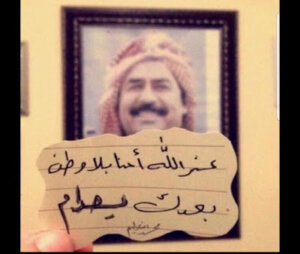 عز الله أحنا بلا وطن
بعدك يصدام